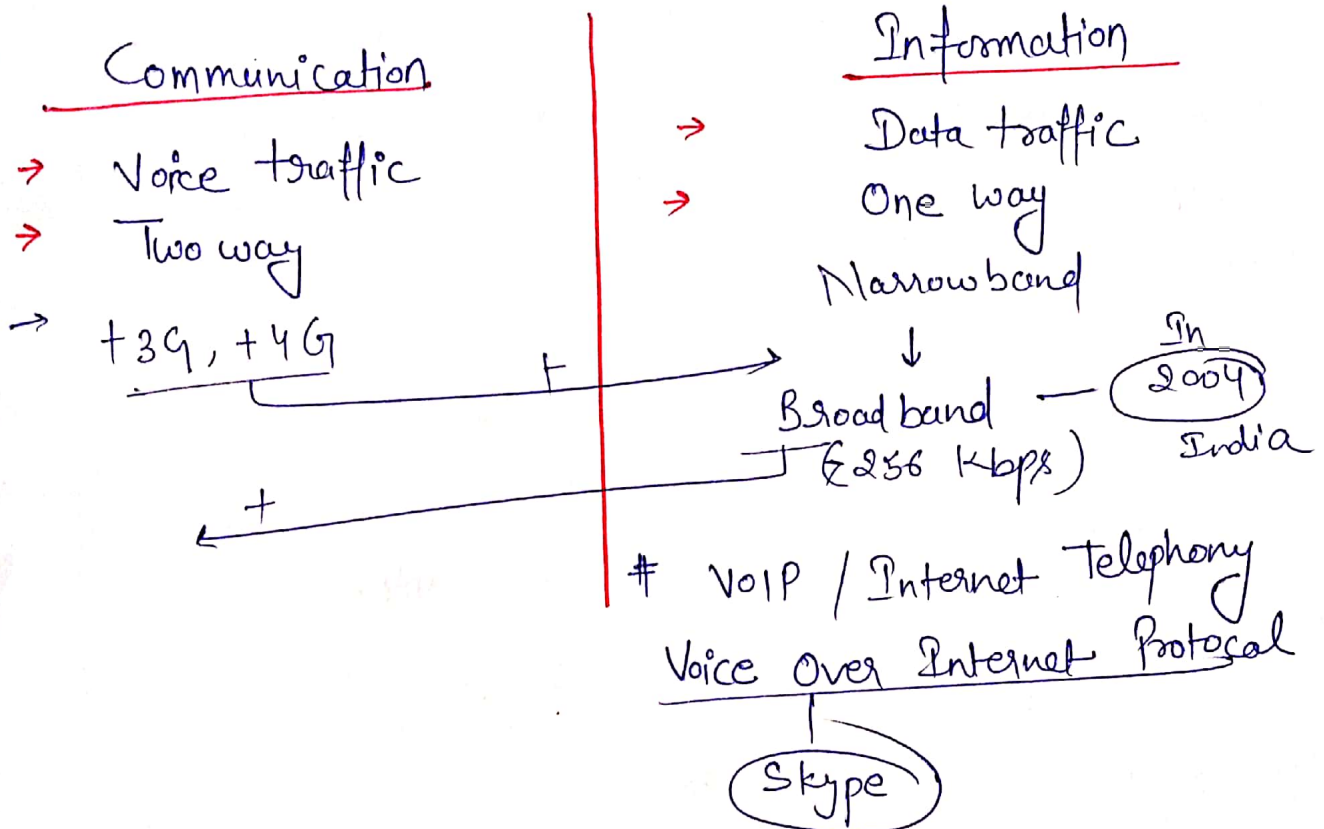 Communication
→ Voice traffic
→ Two way
→ +3G, +4G
+
+
Information
→ Data traffic
→ One way
Narrowband
↓
Broadband — In 2004 India
(≤256 Kbps)
# VOIP / Internet Telephony
Voice Over Internet Protocal
Skype